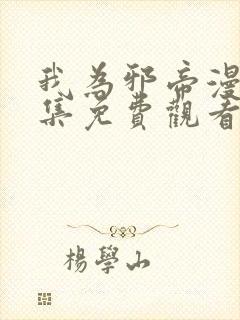 我為邪帝漫
集免費觀看
楊學山